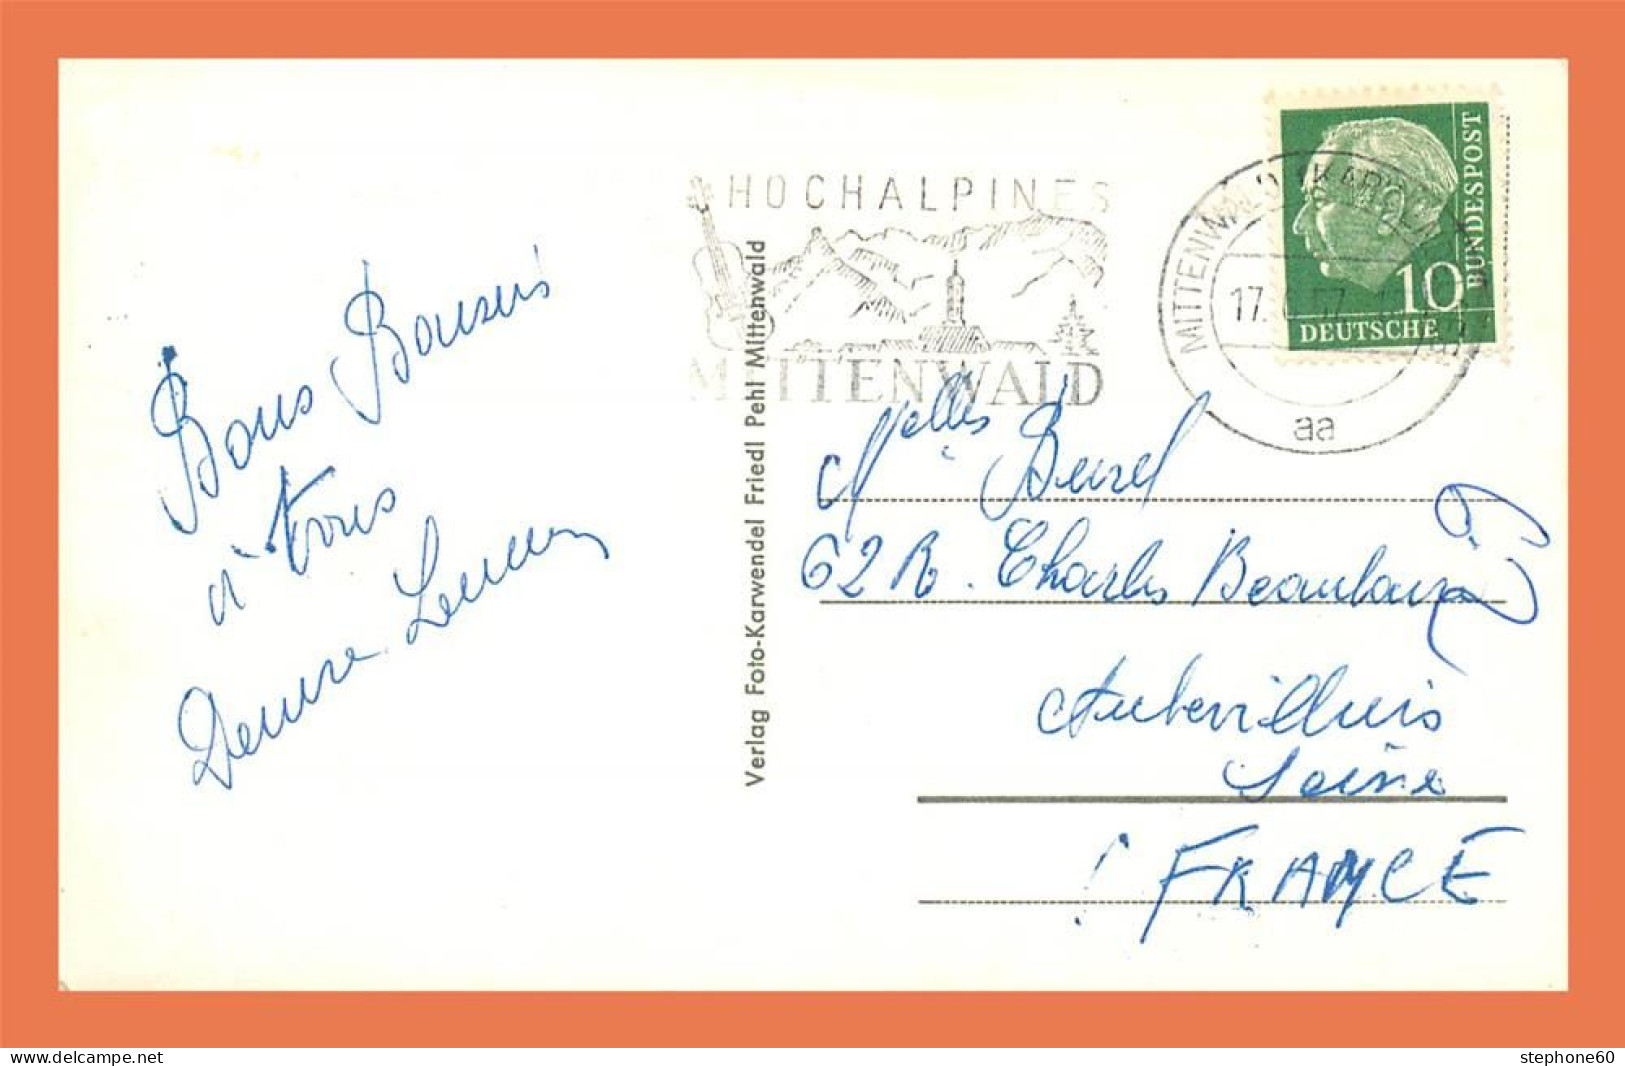 HOCHALPINES
MITTENWALD
MITTENWALD (KARWENDEL)
17.
aa
DEUTSCHE
BUNDESPOST
10
Verlag Foto-Karwendel Friedl Pehl Mittenwald
Bons Baisers
à tous
Denise
Melles
62 R. Charles
Aubervilliers
Seine
FRANCE
www.delcampe.net
stephone60